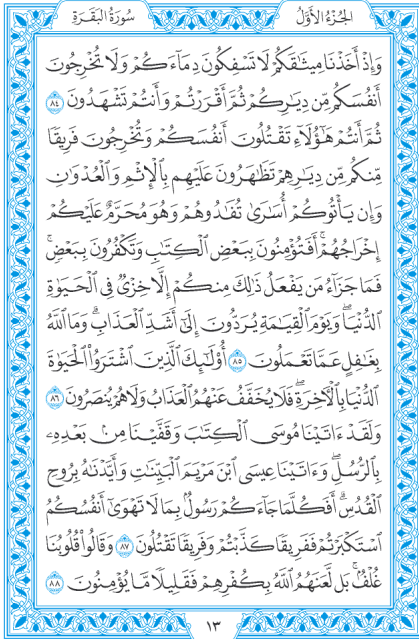 الجُزْءُ الأَوَّلُ
سُورَةُ البَقَرَةِ
وَإِذْ أَخَذْنَا مِيثَٰقَكُمْ لَا تَسْفِكُونَ دِمَآءَكُمْ وَلَا تُخْرِجُونَ
أَنفُسَكُم مِّن دِيَٰرِكُمْ ثُمَّ أَقْرَرْتُمْ وَأَنتُمْ تَشْهَدُونَ ٨٤
ثُمَّ أَنتُمْ هَٰٓؤُلَآءِ تَقْتُلُونَ أَنفُسَكُمْ وَتُخْرِجُونَ فَرِيقًا
مِّنكُم مِّن دِيَٰرِهِمْ تَظَٰهَرُونَ عَلَيْهِم بِٱلْإِثْمِ وَٱلْعُدْوَٰنِ
وَإِن يَأْتُوكُمْ أُسَٰرَىٰ تُفَٰدُوهُمْ وَهُوَ مُحَرَّمٌ عَلَيْكُمْ
إِخْرَاجُهُمْ ۚ أَفَتُؤْمِنُونَ بِبَعْضِ ٱلْكِتَٰبِ وَتَكْفُرُونَ بِبَعْضٍ ۚ
فَمَا جَزَآءُ مَن يَفْعَلُ ذَٰلِكَ مِنكُمْ إِلَّا خِزْيٌ فِى ٱلْحَيَوٰةِ
ٱلدُّنْيَا ۖ وَيَوْمَ ٱلْقِيَٰمَةِ يُرَدُّونَ إِلَىٰٓ أَشَدِّ ٱلْعَذَابِ ۗ وَمَا ٱللَّهُ
بِغَٰفِلٍ عَمَّا تَعْمَلُونَ ٨٥ أُو۟لَٰٓئِكَ ٱلَّذِينَ ٱشْتَرَوُا۟ ٱلْحَيَوٰةَ
ٱلدُّنْيَا بِٱلْءَاخِرَةِ ۖ فَلَا يُخَفَّفُ عَنْهُمُ ٱلْعَذَابُ وَلَا هُمْ يُنصَرُونَ ٨٦
وَلَقَدْ ءَاتَيْنَا مُوسَى ٱلْكِتَٰبَ وَقَفَّيْنَا مِنۢ بَعْدِهِۦ
بِٱلرُّسُلِ ۖ وَءَاتَيْنَا عِيسَى ٱبْنَ مَرْيَمَ ٱلْبَيِّنَٰتِ وَأَيَّدْنَٰهُ بِرُوحِ
ٱلْقُدُسِ ۗ أَفَكُلَّمَا جَآءَكُمْ رَسُولٌۢ بِمَا لَا تَهْوَىٰٓ أَنفُسُكُمُ
ٱسْتَكْبَرْتُمْ فَفَرِيقًا كَذَّبْتُمْ وَفَرِيقًا تَقْتُلُونَ ٨٧ وَقَالُوا۟ قُلُوبُنَا
غُلْفٌۢ ۚ بَل لَّعَنَهُمُ ٱللَّهُ بِكُفْرِهِمْ فَقَلِيلًا مَّا يُؤْمِنُونَ ٨٨
١٣